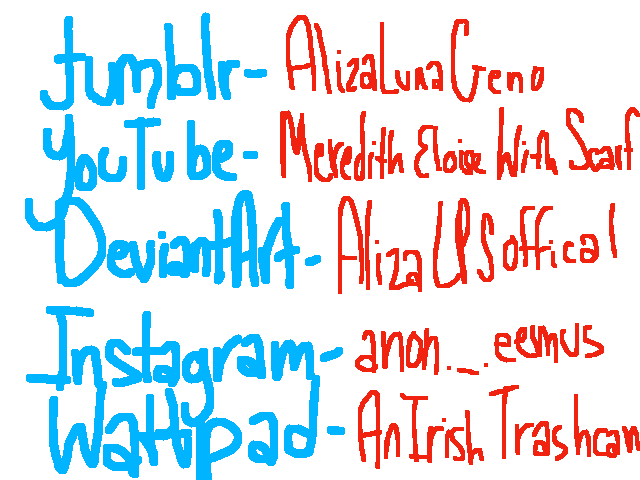 tumblr- AlizaLunaGeno
YouTube- Meredith Eloise With Scarf
DeviantArt- AlizaUPSoffical
Instagram- anon._.eesmus
Wattpad- AnIrishTrashcan